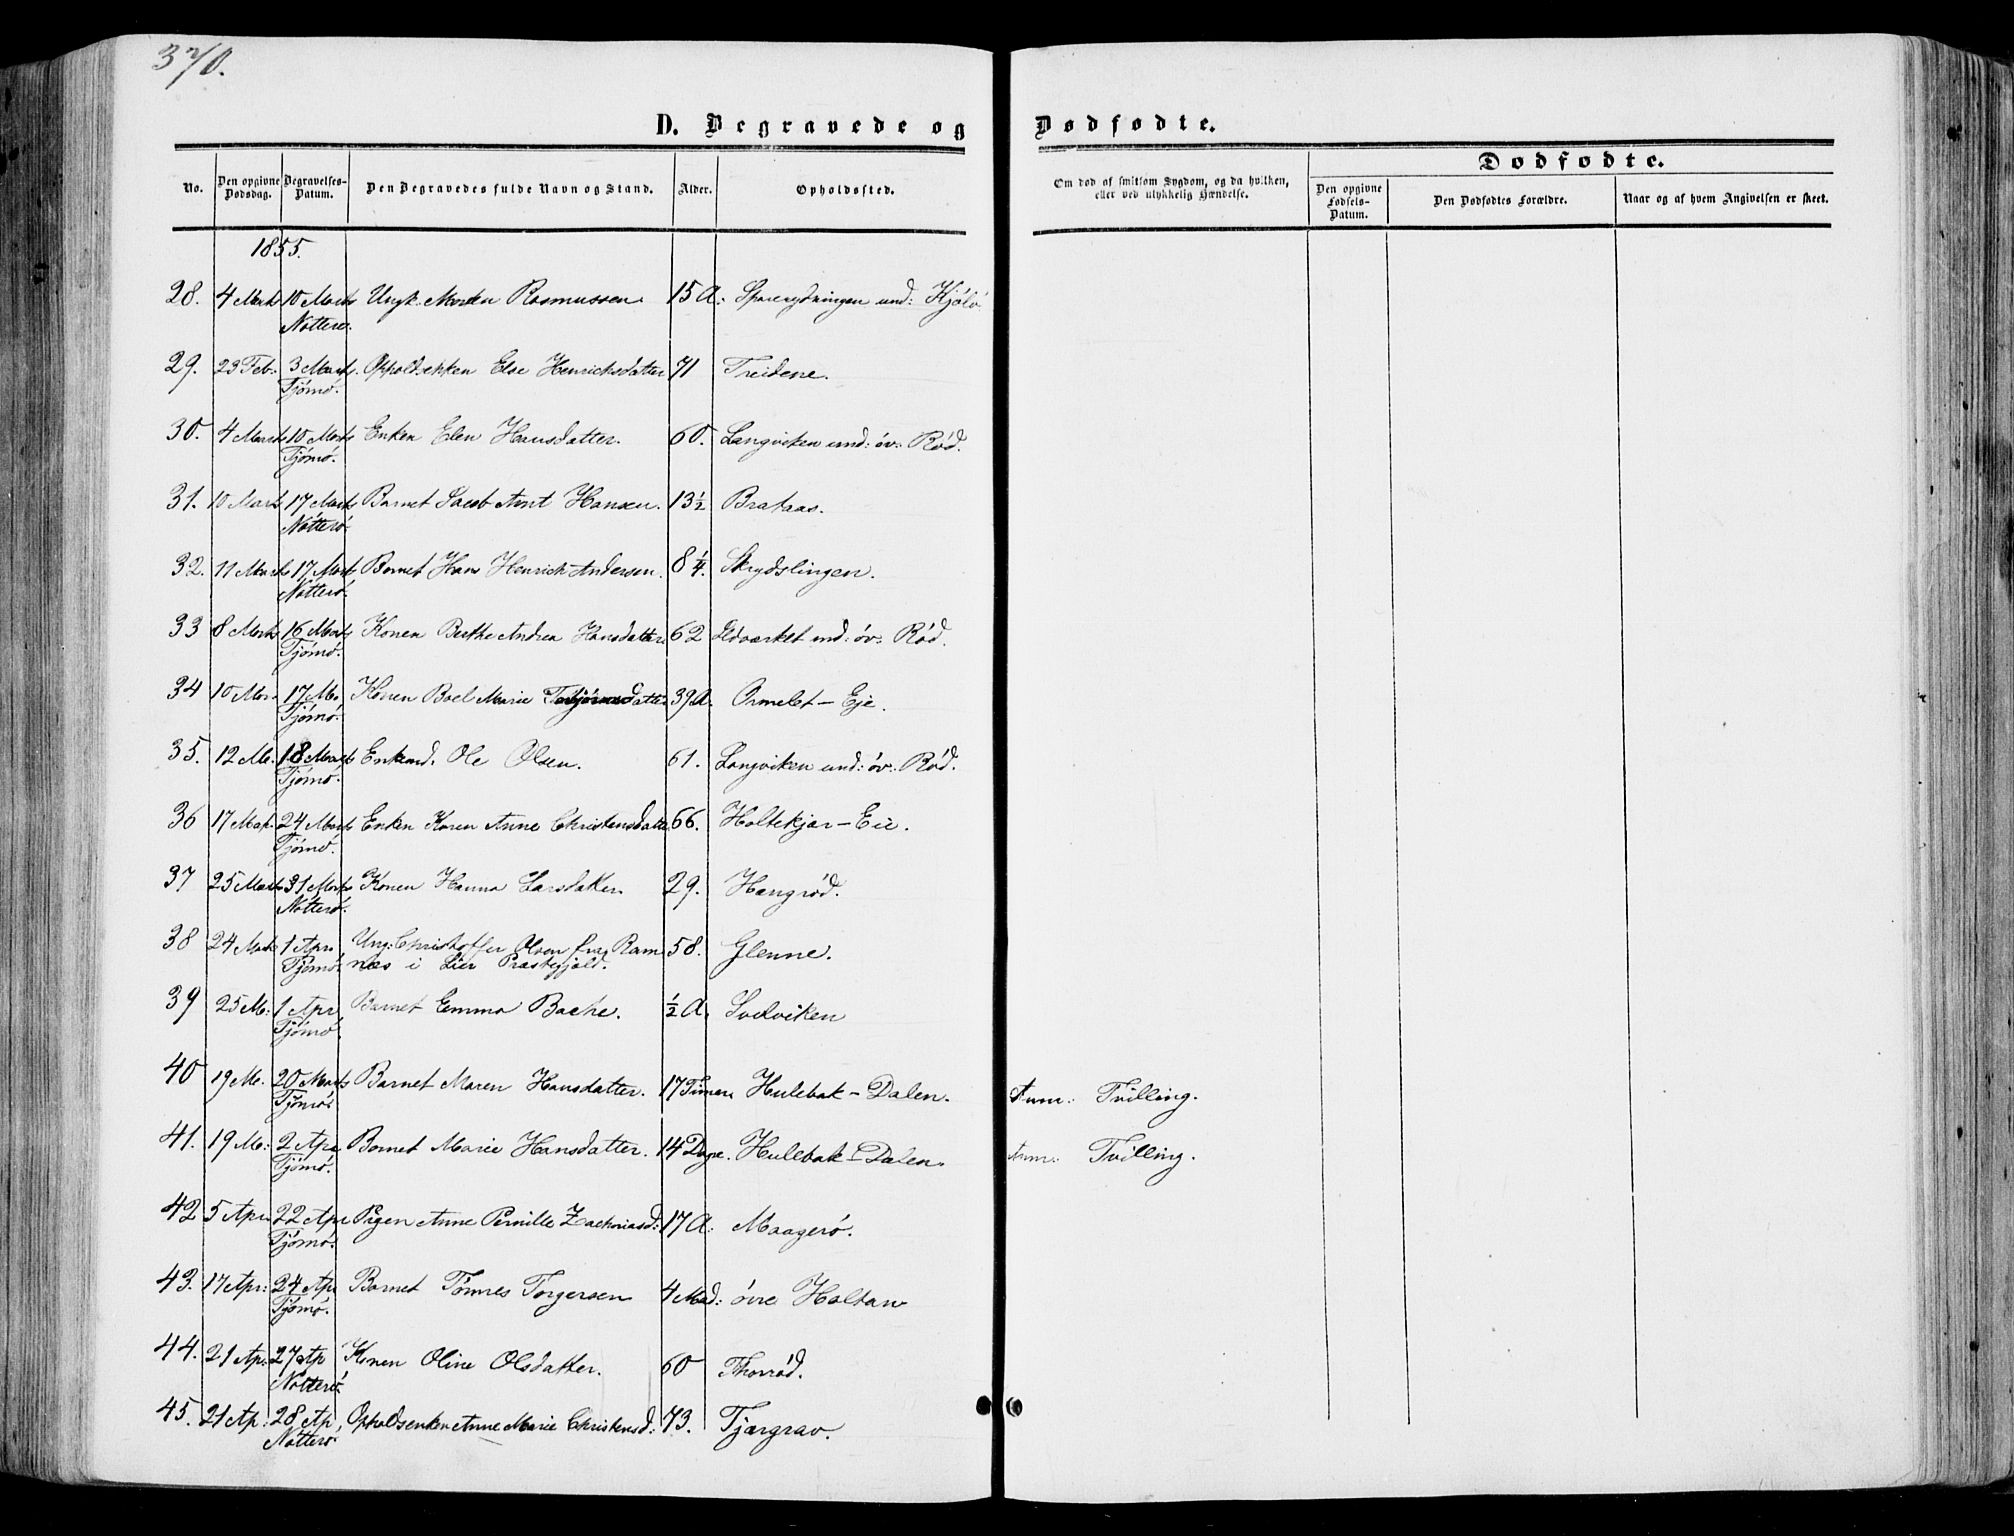 370.
D. Begravede og Dødfødte.
Dødfødte.
No. Den opgivne Dødsdag. Begravelses-Datum. Den Begravedes fulde Navn og Stand. Alder. Opholdssted. Om død af smitsom Sygdom, og da hvilken, eller ved ulykkelig Hændelse. Den opgivne Fødsels-Datum. Den Dødfødtes Forældre. Naar og af hvem Angivelsen er skeet.
1855.
28. 4 Marts 10 Marts Ungk. Morten Rasmussen. 15 A: und: Kjølø
Nøtterø.
29. 23 Feb. 3 Marts. Opholdsenken Else Henrichsdatter 71 Treidene.
Tjømø.
30. 4 Marts 10 Marts Enken Elen Hansdatter. 60. Langviken und: öv: Rød.
Tjømø.
31. 10 Marts 17 Marts Barnet Jacob Arnt Hansen. 13½ Brataas.
Nøtterø.
32. 11 Marts 17 Marts Barnet Hans Henrich Andersen. 8¼. Skrydslingen.
Nøtterø.
33 8 Marts 16 Marts Konen Berthe Andrea Hansdatter 62 und: öv: Rød.
Tjømø.
34 10 Mar. 17 Ma. Konen Boel Marie Torbjørnsdatter 39 A. Ormelet - Eje.
Tjømø.
35. 12 M. 18 Marts Enkemd. Ole Olsen. 61. Langviken und: öv: Rød.
Tjømø.
36 17 Mar. 24 Marts Enken Karen Anne Christensdatter 66. Holtekjær - Eie.
Tjømø.
37 25 Marts 31 Marts Konen Hanna Larsdatter 29. Hængrød.
Nøtterø.
38 24 Marts 1 Apr. Ung: Christoffer Olsen fra Ram 58. Glenne.
Tjømø. næs i Lier Præstegjeld.
39 25 M: 1 Apr Barnet Emma Bache. ½ A. Svelviken
Tjømø.
40 19 M. 20 Marts Barnet Maren Hansdatter. 17 Timer Hulebak - Dalen. Anm: Tvilling.
Tjømø.
41. 19 M: 2 Apr Barnet Marie Hansdatter. 14 Dage. Hulebak - Dalen. Anm: Tvilling.
Tjømø.
42 5 Apr 22 Apr Pigen Anne Pernille Zachariasd: 17 A: Maagerø.
Tjømø.
43. 17 Apr: 24 Apr Barnet Tønnes Torgersen 4 Mad: övre Holtan
Tjømø.
44. 21 Ap. 27 Ap Konen Oline Olsdatter. 60 Thorød.
Nøtterø.
45. 21 Ap: 28 Ap. Opholdsenken Anne Marie Christensd: 73. Tjærgrav.
Nøtterø.